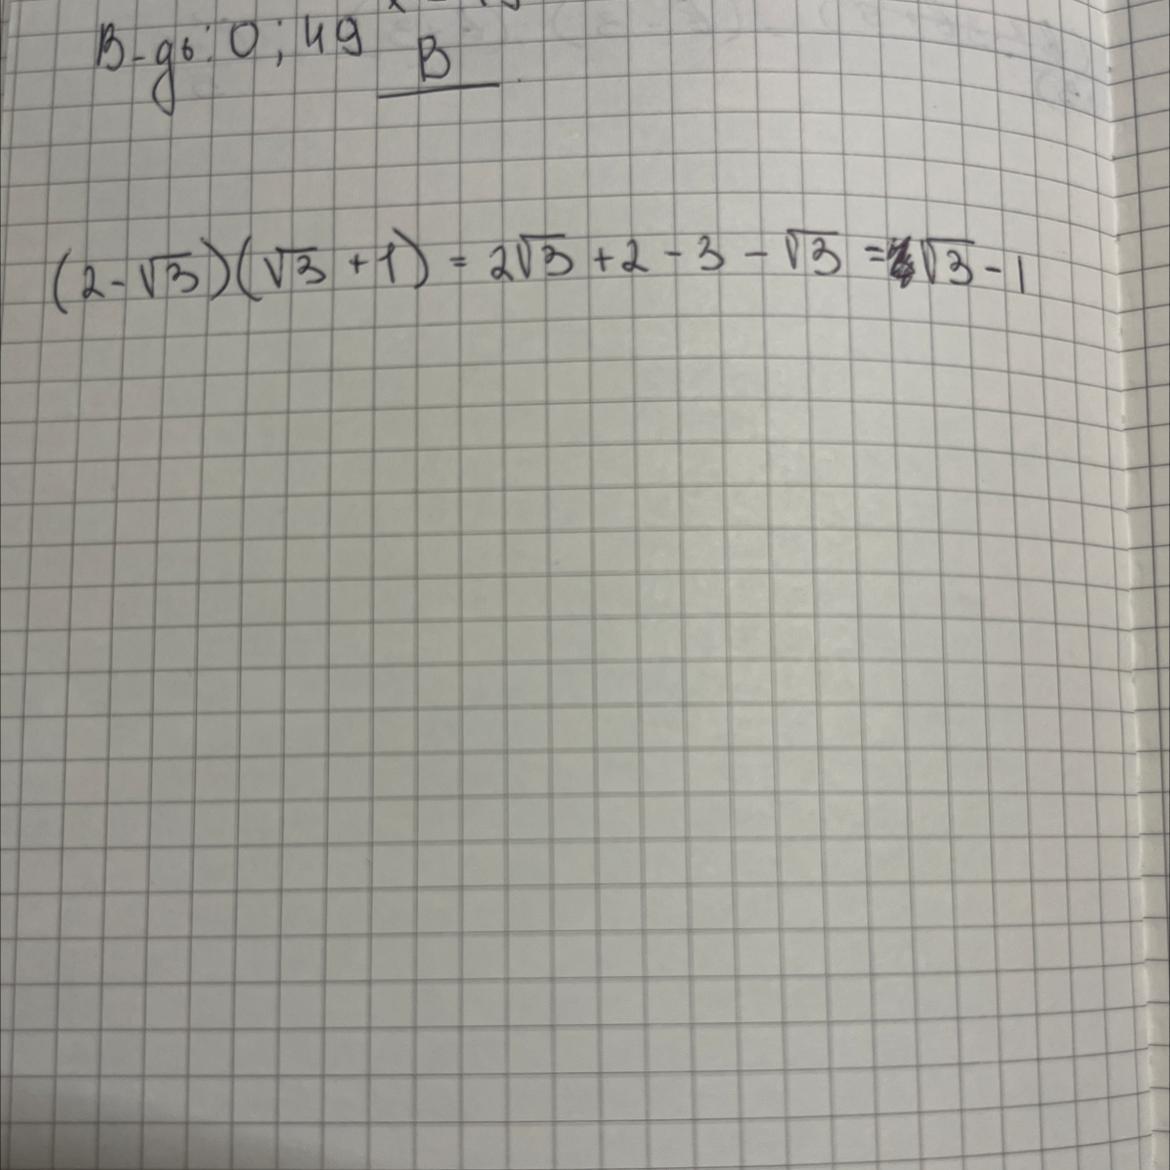 В-дь: 0; 49 B
(2-√3)(√3+1) = 2√3+2-3-√3 = √3-1